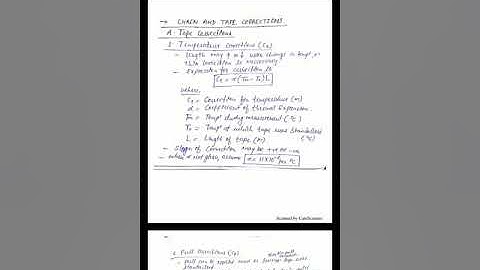 → CHAIN AND TAPE CORRECTIONS
A. Tape Corrections
1. Temperature correction (Ct)
- length may ↑ or ↓ with change in temp, so
this correction is necessary.
- Expression for correction is
Ct = α(Tm - To)L
where,
Ct = Correction for temperature (m)
α = Coefficient of thermal expansion
Tm = Temp during measurement (°C)
To = Temp at which tape was standardised (°C)
L = Length of tape (m)
- Sign of Correction may be +ve or -ve
- when α not given, assume
Scanned by CamScanner
2. Pull Correction (Cp)
- pull can be applied more or less